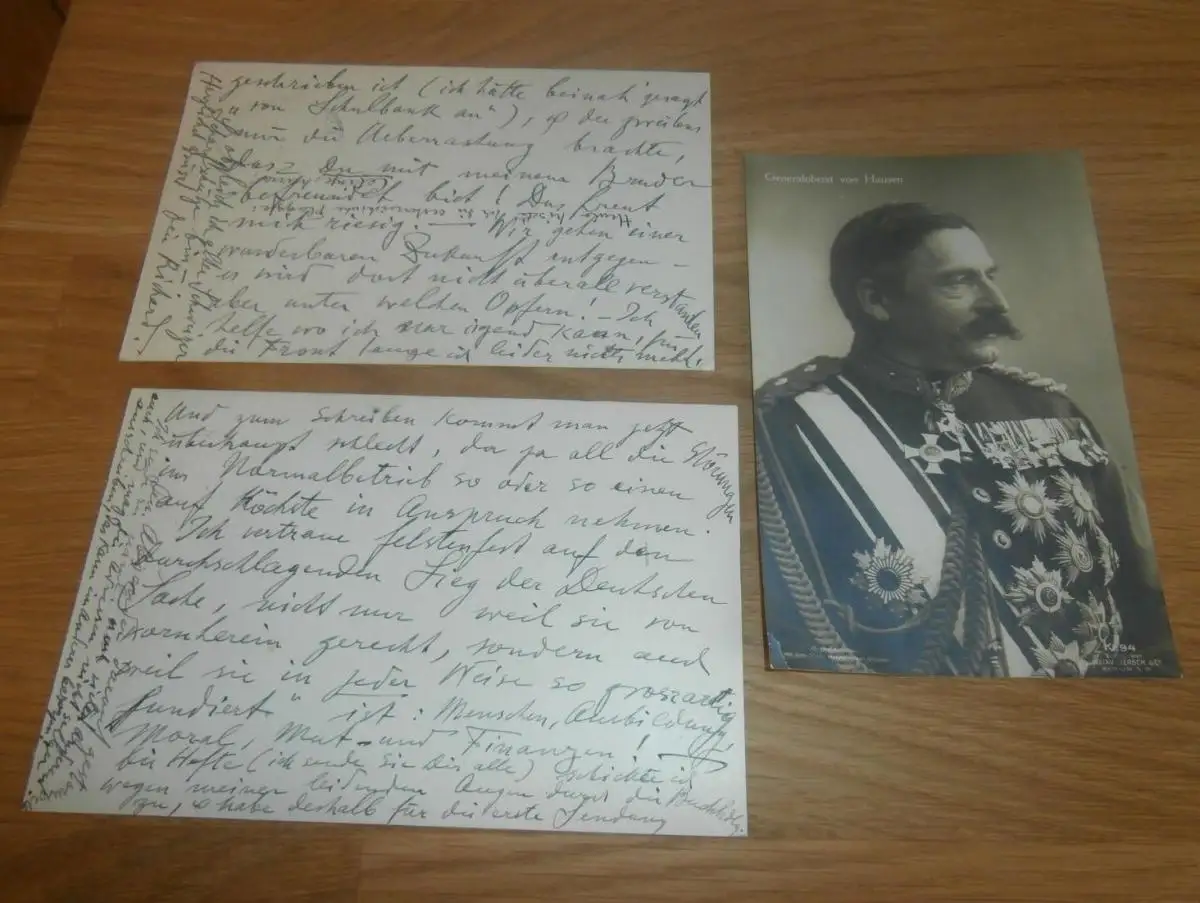 geschrieben ist (ich hätte beinah' gesagt
„von Schulbank an"), & der zweitens
nur die Ueberrastung brachte,
dass Du mit meinem Bruder
befreundet bist! Das freut
Heute hisste ich die oesterreichische Flagge:
mich riesig. — Wir gehen einer
wunderbaren Zukunft entgegen –
es wird dort nicht überall verstanden
aber unter welchen Opfern! – Ich
helfe wo ich nur irgend kann, für
die Front tauge ich leider nicht mehr,
Herzlichst grüsst
Dein Richard.
Und zum Schreiben kommt man jetzt
überhaupt schlecht, da ja all die Störungen
im Normalbetrieb so oder so einen
auf Höchste in Anspruch nehmen.
Ich vertraue felsenfest auf den
durchschlagenden Sieg der Deutschen
Sache, nicht nur weil sie von
vornherein gerecht, sondern auch
weil sie in jeder Weise so grossartig
„fundiert" ist: Menschen, Ausbildung,
Moral, Mut und Finanzen! —
Die Hefte (ich sende sie Dir alle) schickte ich
wegen meiner leidenden Augen durch die Buchhdlg.
zu, & habe deshalb für die erste Sendung
Generaloberst von Hausen
K. 94